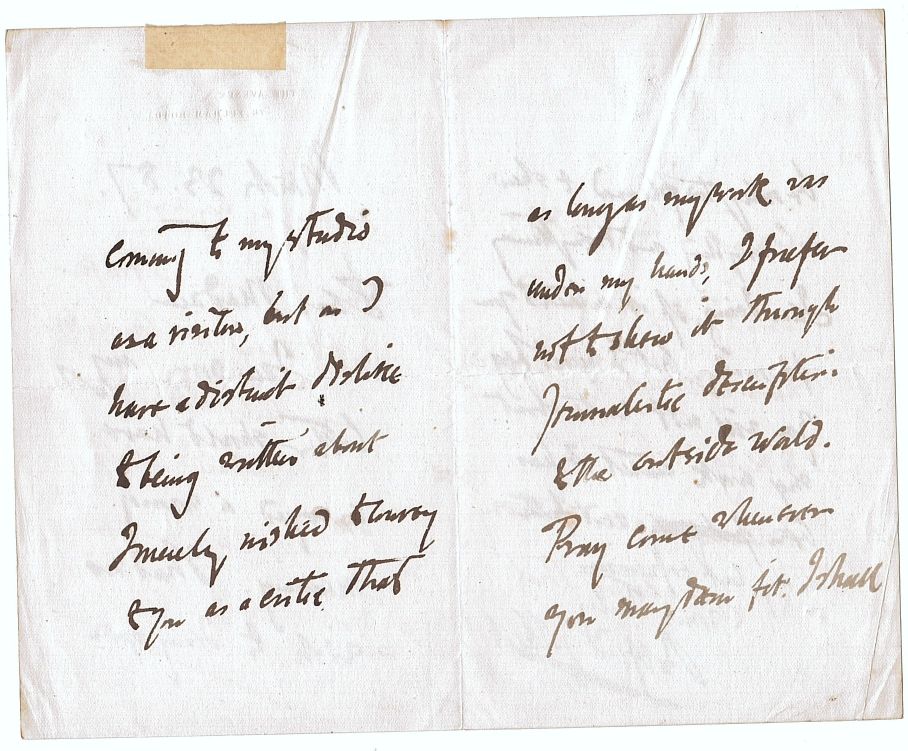 coming to my studio
as a visitor, but as I
have a distinct dislike
to being written about
I merely wished to convey
to you as a critic that
as long as my work was
under my hands, I prefer
not to show it through
journalistic description
to the outside world.
Pray come whenever
you may deem fit. I shall